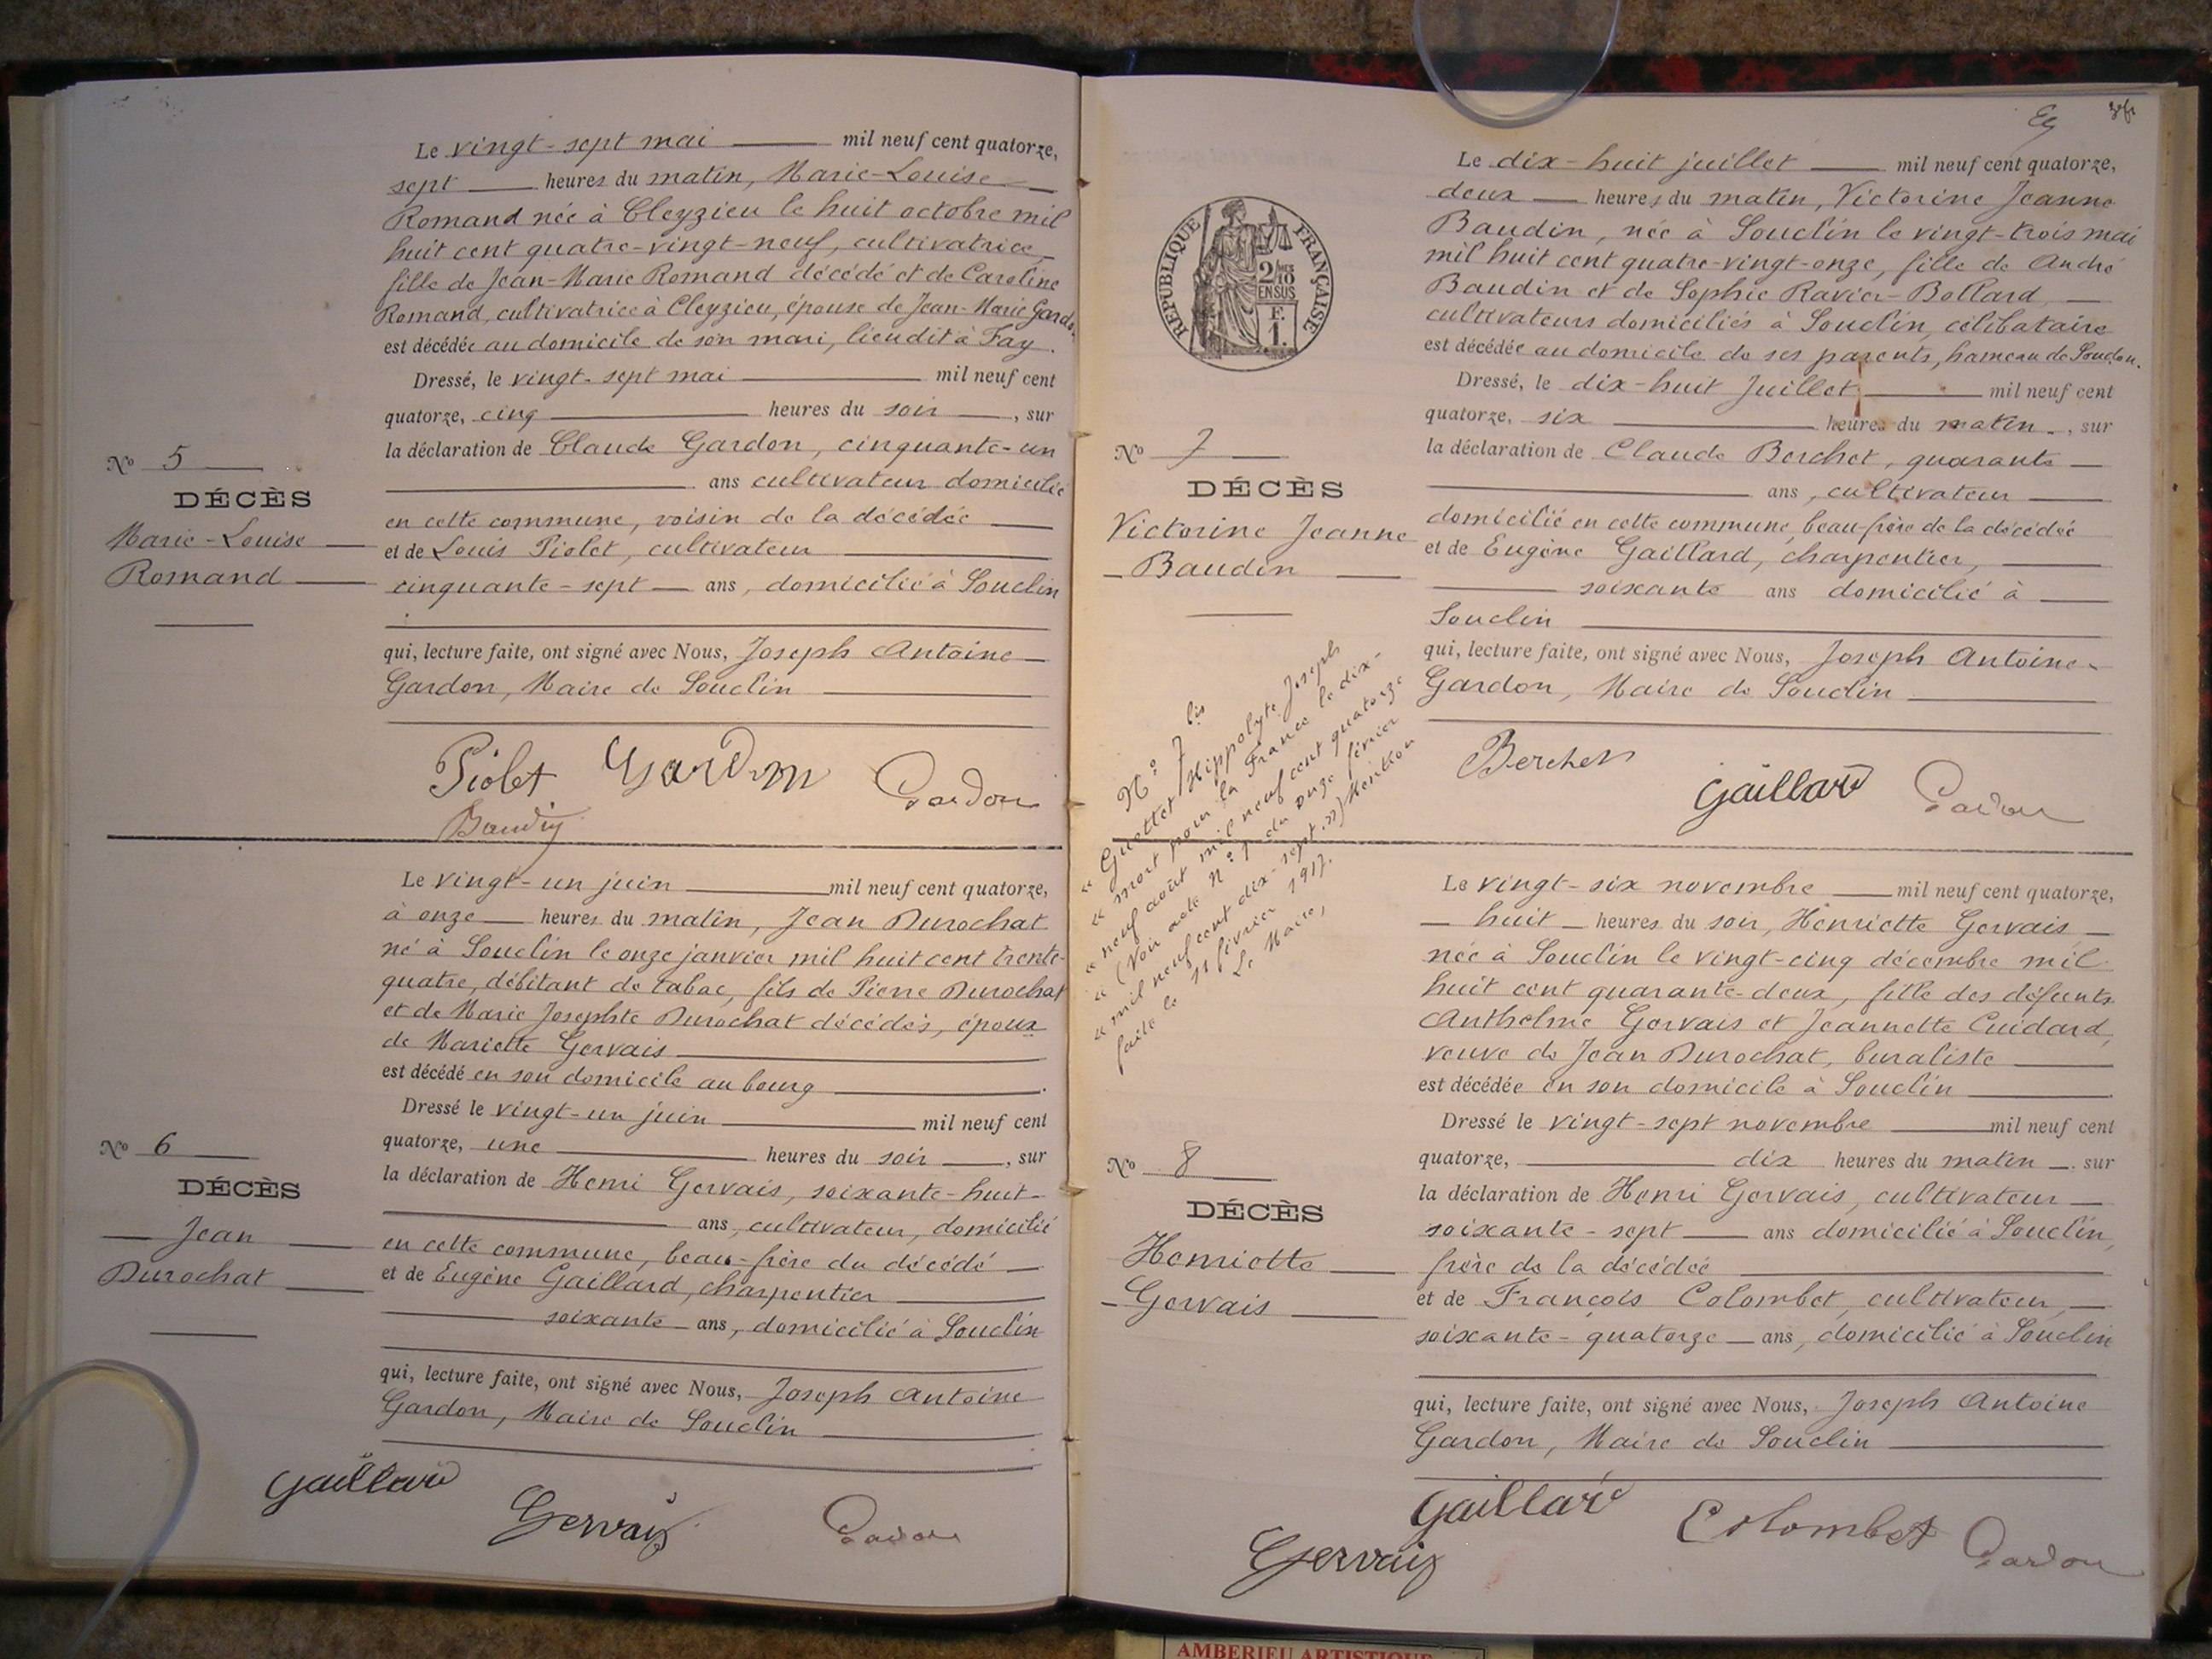 Le vingt-sept mai mil neuf cent quatorze,
sept heures du matin, Marie-Louise
Romand née à Cleyzieu le huit octobre mil
huit cent quatre-vingt-neuf, cultivatrice,
fille de Jean-Marie Romand décédé et de Caroline
Romand, cultivatrice à Cleyzieu, épouse de Jean-Marie Gardon
est décédée au domicile de son mari, lieudit à Fay.
Dressé, le vingt-sept mai mil neuf cent
quatorze, cinq heures du soir, sur
la déclaration de Claude Gardon, cinquante-un
ans cultivateur domicilié
en cette commune, voisin de la décédée
et de Louis Piolet, cultivateur
cinquante-sept ans, domicilié à Souclin
qui, lecture faite, ont signé avec Nous, Joseph Antoine
Gardon, Maire de Souclin
No 5
DÉCÈS
Marie-Louise
Romand
Piolet Gardon Gardon
Baudin
Le vingt-un juin mil neuf cent quatorze,
à onze heures du matin, Jean Durochat
né à Souclin le onze janvier mil huit cent trente-
quatre, débitant de tabac, fils de Pierre Durochat
et de Marie Josephte Durochat décédés, époux
de Mariette Gervais
est décédé en son domicile au bourg.
Dressé le vingt-un juin mil neuf cent
quatorze, une heures du soir, sur
la déclaration de Henri Gervais, soixante-huit
ans, cultivateur, domicilié
en cette commune, beau-frère du décédé
et de Eugène Gaillard, charpentier
soixante ans, domicilié à Souclin
qui, lecture faite, ont signé avec Nous, Joseph Antoine
Gardon, Maire de Souclin
No 6
DÉCÈS
Jean
Durochat
Gaillard Gervais Gardon
RÉPUBLIQUE FRANÇAISE
2/10 EN SUS
F. 1.
Le dix-huit juillet mil neuf cent quatorze,
deux heures du matin, Victorine Jeanne
Baudin, née à Souclin le vingt-trois mai
mil huit cent quatre-vingt-onze, fille de André
Baudin et de Sophie Ravier-Bollard,
cultivateurs domiciliés à Souclin, célibataire
est décédée au domicile de ses parents, hameau de Soudon.
Dressé, le dix-huit Juillet mil neuf cent
quatorze, six heures du matin, sur
la déclaration de Claude Berchet, quarante
ans, cultivateur
domicilié en cette commune, beau-frère de la décédée
et de Eugène Gaillard, charpentier,
soixante ans domicilié à
Souclin
qui, lecture faite, ont signé avec Nous, Joseph Antoine
Gardon, Maire de Souclin
No 7
DÉCÈS
Victorine Jeanne
Baudin
Berchet Gaillard Gardon
N° 7 bis
« Guettet Hippolyte Joseph
« mort pour la France le dix-
« neuf août mil neuf cent quatorze
« (Voir acte N° 1 du onze février
« mil neuf cent dix-sept.») Mention
faite le 11 février 1917.
Le Maire,
Le vingt-six novembre mil neuf cent quatorze,
huit heures du soir, Henriette Gervais
née à Souclin le vingt-cinq décembre mil
huit cent quarante-deux, fille des défunts
Anthelme Gervais et Jeannette Cuidard,
veuve de Jean Durochat, buraliste
est décédée en son domicile à Souclin
Dressé le vingt-sept novembre mil neuf cent
quatorze, dix heures du matin sur
la déclaration de Henri Gervais, cultivateur
soixante-sept ans domicilié à Souclin,
frère de la décédée
et de François Colombet, cultivateur,
soixante-quatorze ans, domicilié à Souclin
qui, lecture faite, ont signé avec Nous, Joseph Antoine
Gardon, Maire de Souclin
No 8
DÉCÈS
Henriette
Gervais
Gaillard Colombet Gardon
Gervais
AMBERIEU ARTISTIQUE